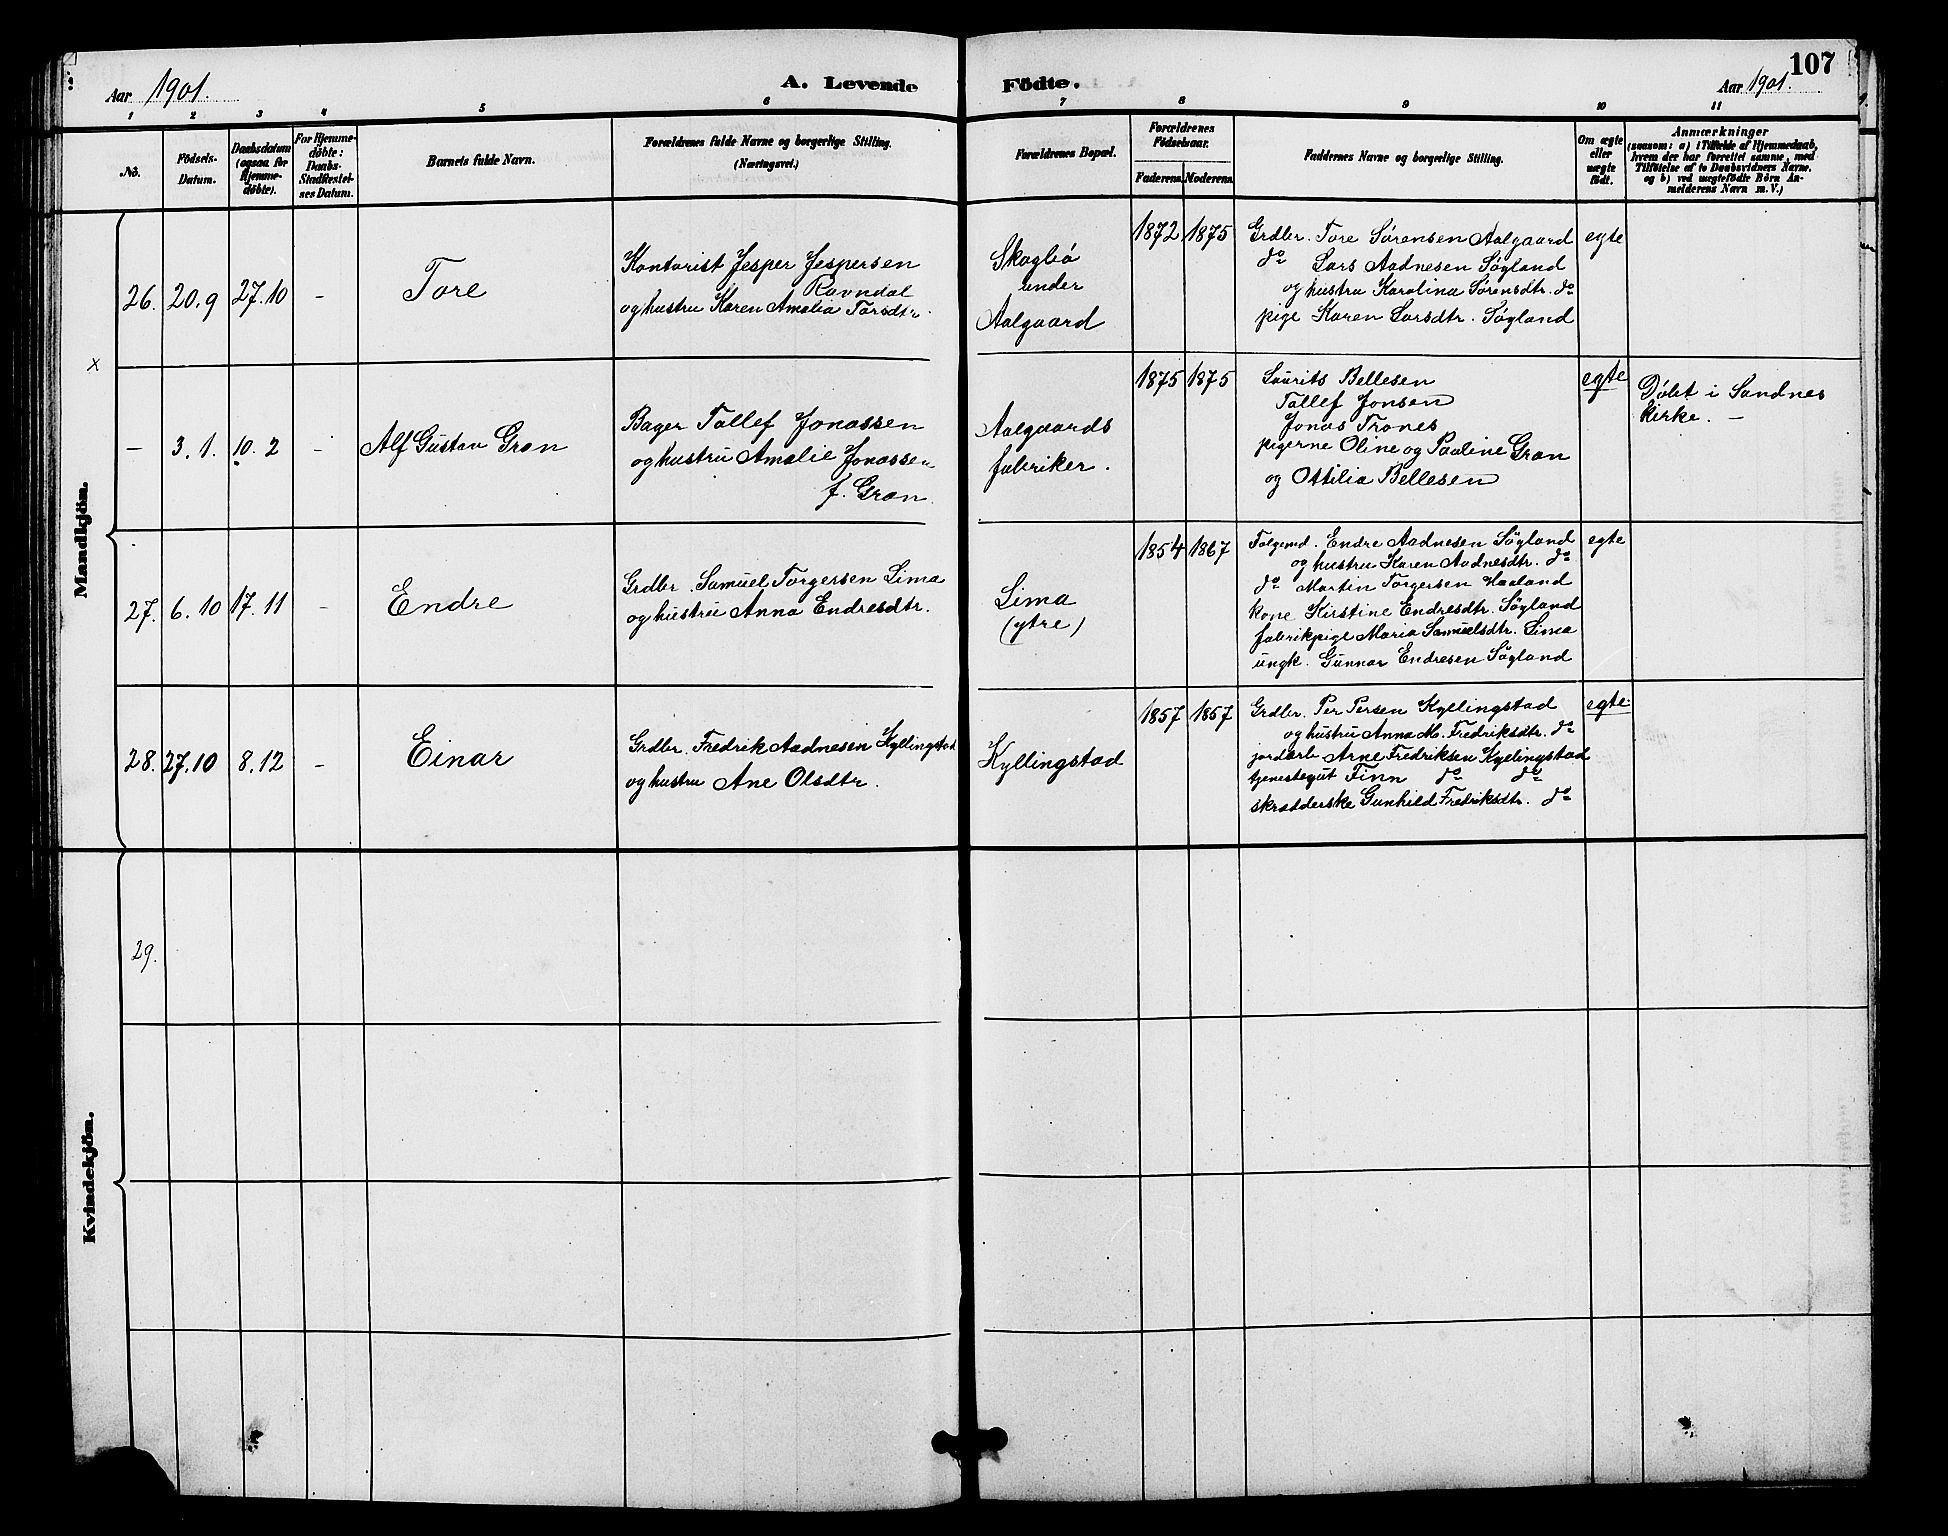 107
Aar 1901.
A. Levende Födte.
Aar 1901.
1 2 3 4 5 6 7 8 9 10 11
No.
Födsels-
Datum.
Daabsdatum
(ogsaa for
Hjemme-
døbte).
For Hjemme-
døbte:
Daabs-
Stadfæstel-
ses Datum.
Barnets fulde Navn.
Forældrenes fulde Navne og borgerlige Stilling.
(Næringsvei.)
Forældrenes Bopæl.
Forældrenes
Födselsaar.
Faderens. Moderens.
Faddernes Navne og borgerlige Stilling.
Om ægte
eller
uægte
født.
Anmærkninger
(saasom: a) i Tilfælde af Hjemmedaab,
hvem der har forrettet samme, med
Tilføielse af to Daabsvidners Navne,
og b) ved uægtefödte Börn An-
melderens Navn m. V.)
Mandkjön.
26. 20.9 27.10 -
Tore
Kontorist Jesper Jespersen
Ravndal
og hustru Karen Amalia Torsdtr.
Skogbø
under
Aalgaard
1872 1875
Grdbr. Tore Sørensen Aalgaard
do Lars Aadnesen Søyland
og hustru Karolina Sørensdtr. do
pige Karen Larsdtr. Søyland
egte
x
- 3.1. 10.2 -
Alf Gustav Gran
Bager Tollef Jonassen
og hustru Amalie Jonassen
f. Gran.
Aalgaards
fabriker.
1875 1875
Laurits Bellesen
Tollef Jonsen
Jonas Trones
pigerne Oline og Pauline Gran
og Ottilia Bellesen
egte
Døbt i Sandnes
kirke. -
27. 6.10 17.11 -
Endre
Grdbr. Samuel Torgersen Lima
og hustru Anna Endresdtr.
Lima
(ytre)
1854 1867
Folgemd. Endre Aadnesen Søyland
og hustru Karen Aadnesdtr. do
do Martin Torgersen Haaland
kone Kirstine Endresdtr. Søyland
fabrikpige Maria Samuelsdtr. Lima
ungk. Gunnar Endresen Søyland
egte
28. 27.10 8.12 -
Einar
Grdbr. Fredrik Aadnesen Kyllingstad
og hustru Ane Olsdtr.
Kyllingstad
1857 1857
Grdbr. Per Persen Kyllingstad
og hustru Anna M. Fredriksdtr. do
jordarb Arne Fredriksen Kyllingstad
tjenestegut Finn do do
skrædderske Gunhild Fredriksdtr. do
egte
Kvindekjön.
29.